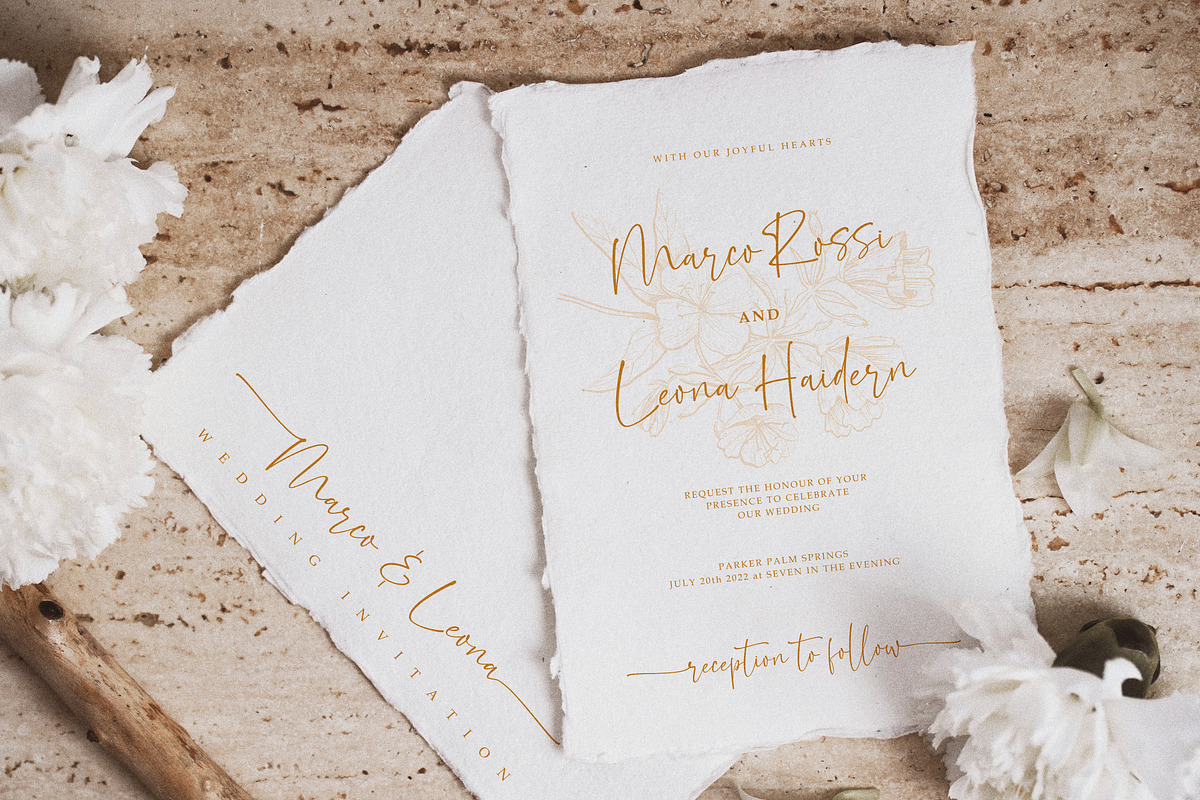 WITH OUR JOYFUL HEARTS
Marco Rossi
AND
Leona Haidern
REQUEST THE HONOUR OF YOUR
PRESENCE TO CELEBRATE
OUR WEDDING
PARKER PALM SPRINGS
JULY 20th 2022 at SEVEN IN THE EVENING
reception to follow
Marco & Leona
WEDDING INVITATION